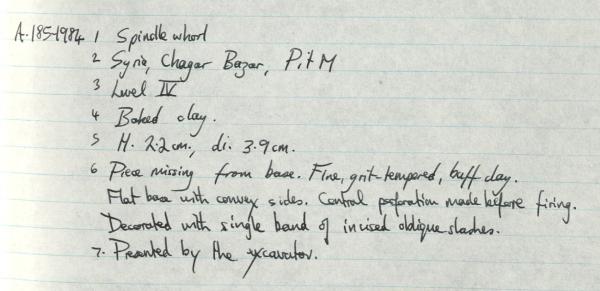 A.185-1984 1 Spindle whorl
2 Syria, Chagar Bazar, Pit M
3 Level IV
4 Baked clay.
5 H. 2.2cm., di. 3.9cm.
6 Piece missing from base. Fine, grit-tempered, buff clay.
Flat base with convex sides. Central perforation made before firing.
Decorated with single band of incised oblique slashes.
7. Presented by the excavator.